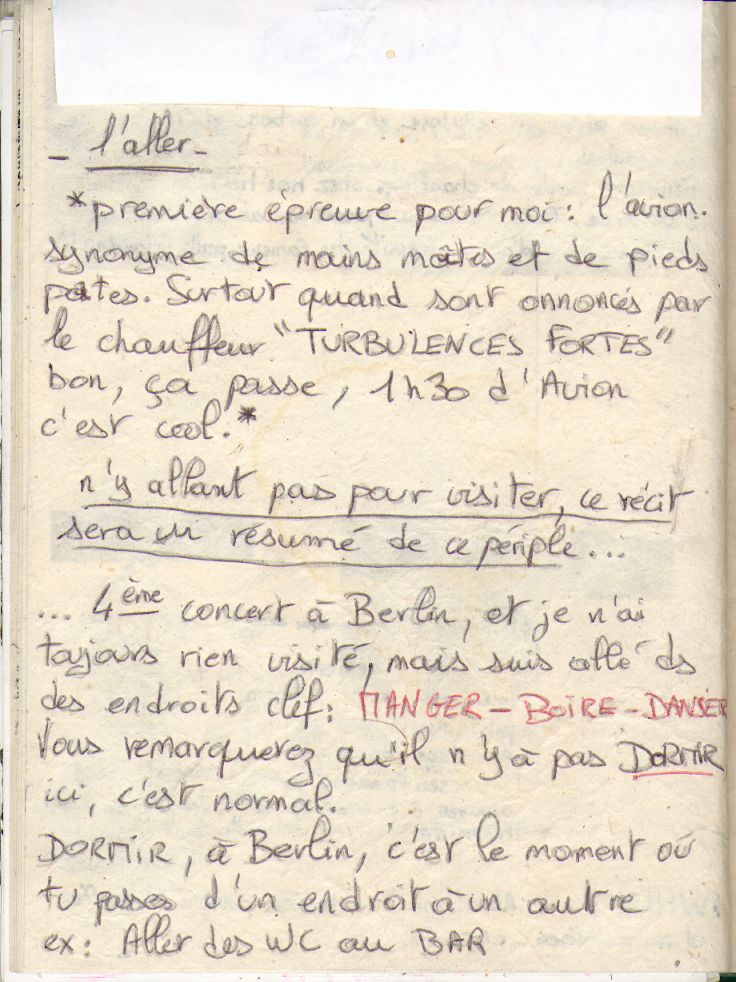 - l'aller -
*première épreuve pour moi : l'avion.
synonyme de mains moîtes et de pieds
pâtes. Surtout quand sont annoncés par
le chauffeur "TURBULENCES FORTES"
bon, ça passe, 1h30 d'Avion
c'est cool.*
n'y allant pas pour visiter, ce récit
sera un résumé de ce périple...
... 4ème concert à Berlin, et je n'ai
toujours rien visité, mais suis allé ds
des endroits clef: MANGER - BOIRE - DANSER
Vous remarquerez qu'il n'y à pas DORMIR
ici, c'est normal.
DORMIR, à Berlin, c'est le moment où
tu passes d'un endroit à un autre
ex: Aller des WC au BAR.